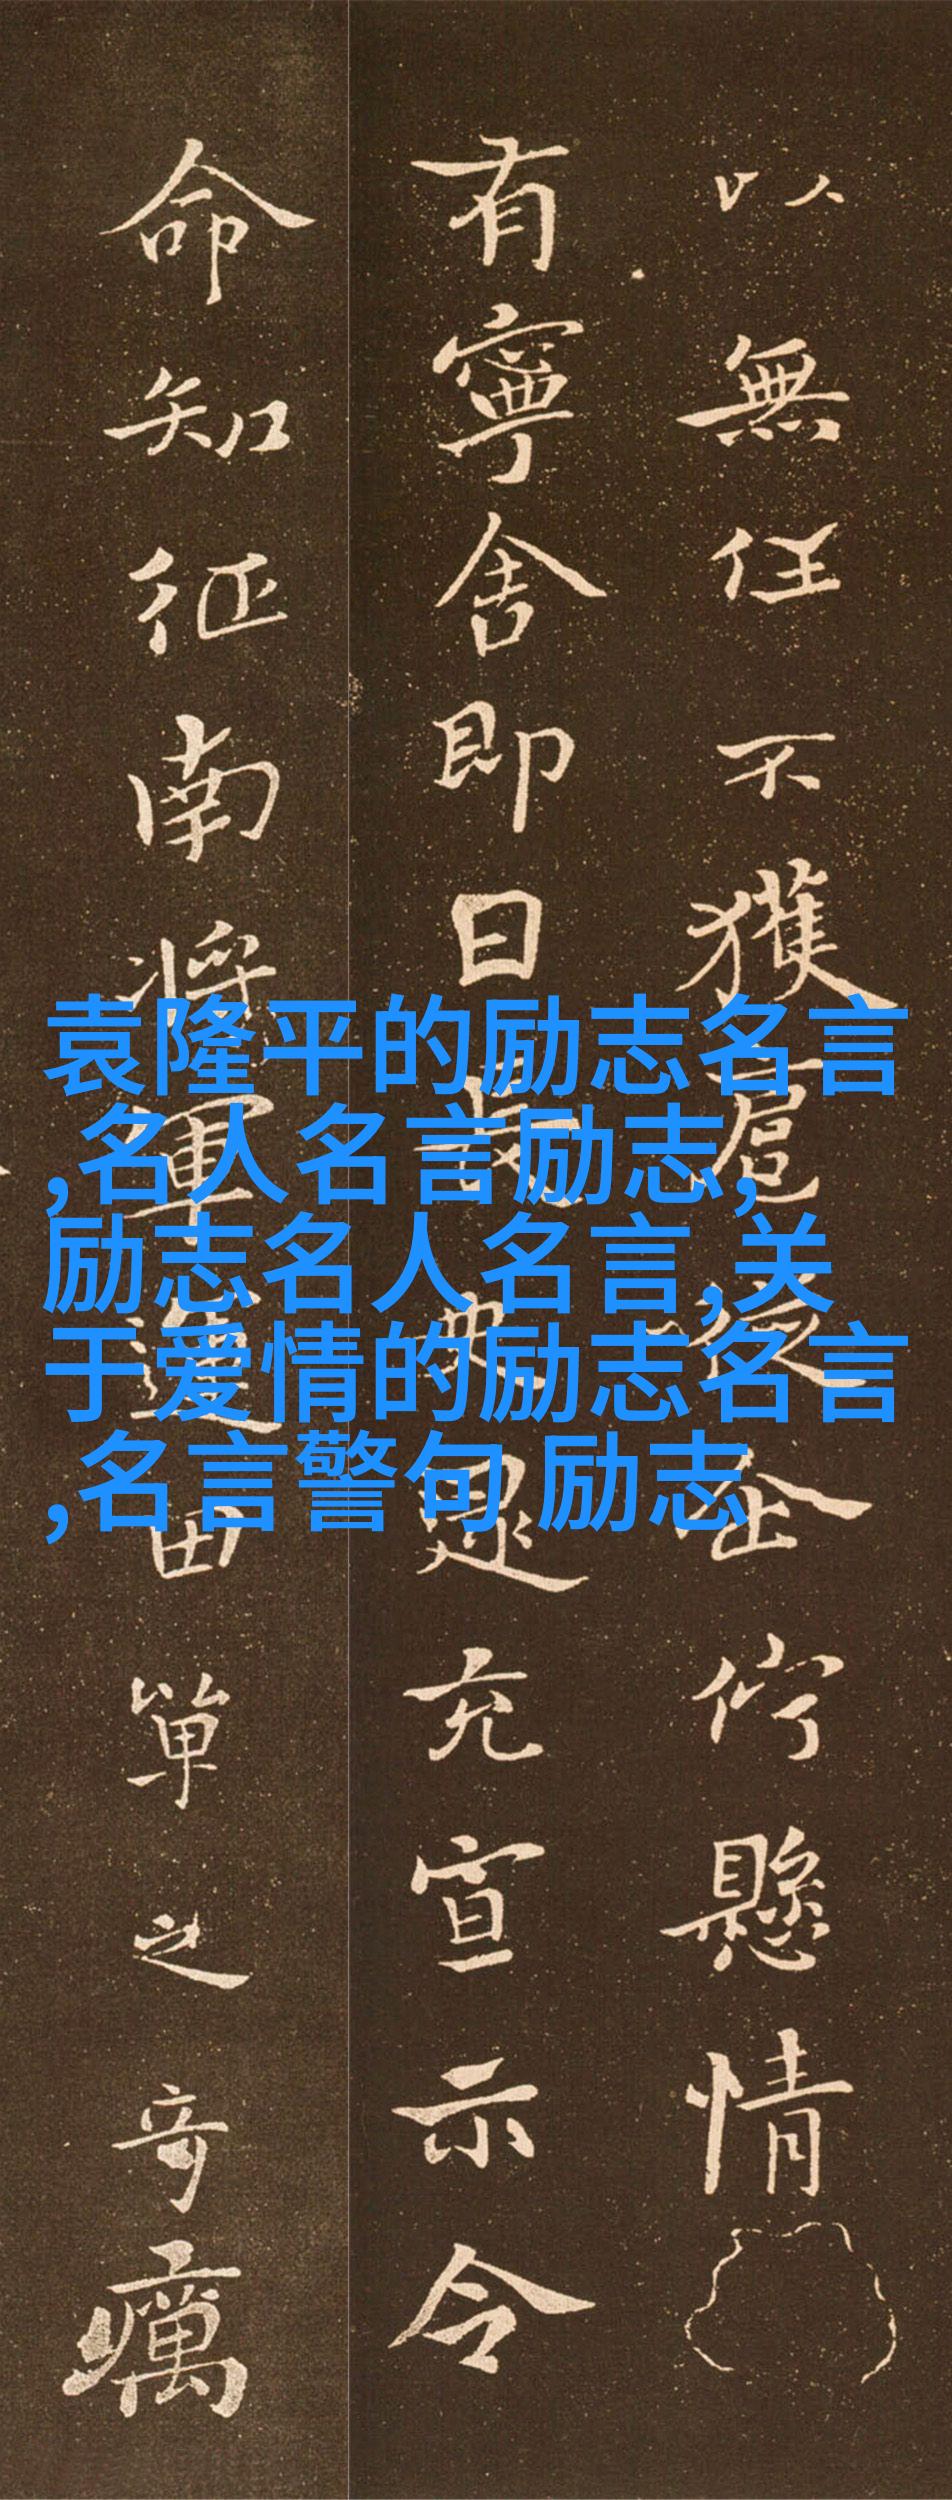 以無任不獲扈從企佇懸情
有寧舍即日長史逮充宣示令
命知征南將軍運田單之奇癘
袁隆平的励志名言
,名人名言励志,
励志名人名言,关
于爱情的励志名言
,名言警句 励志